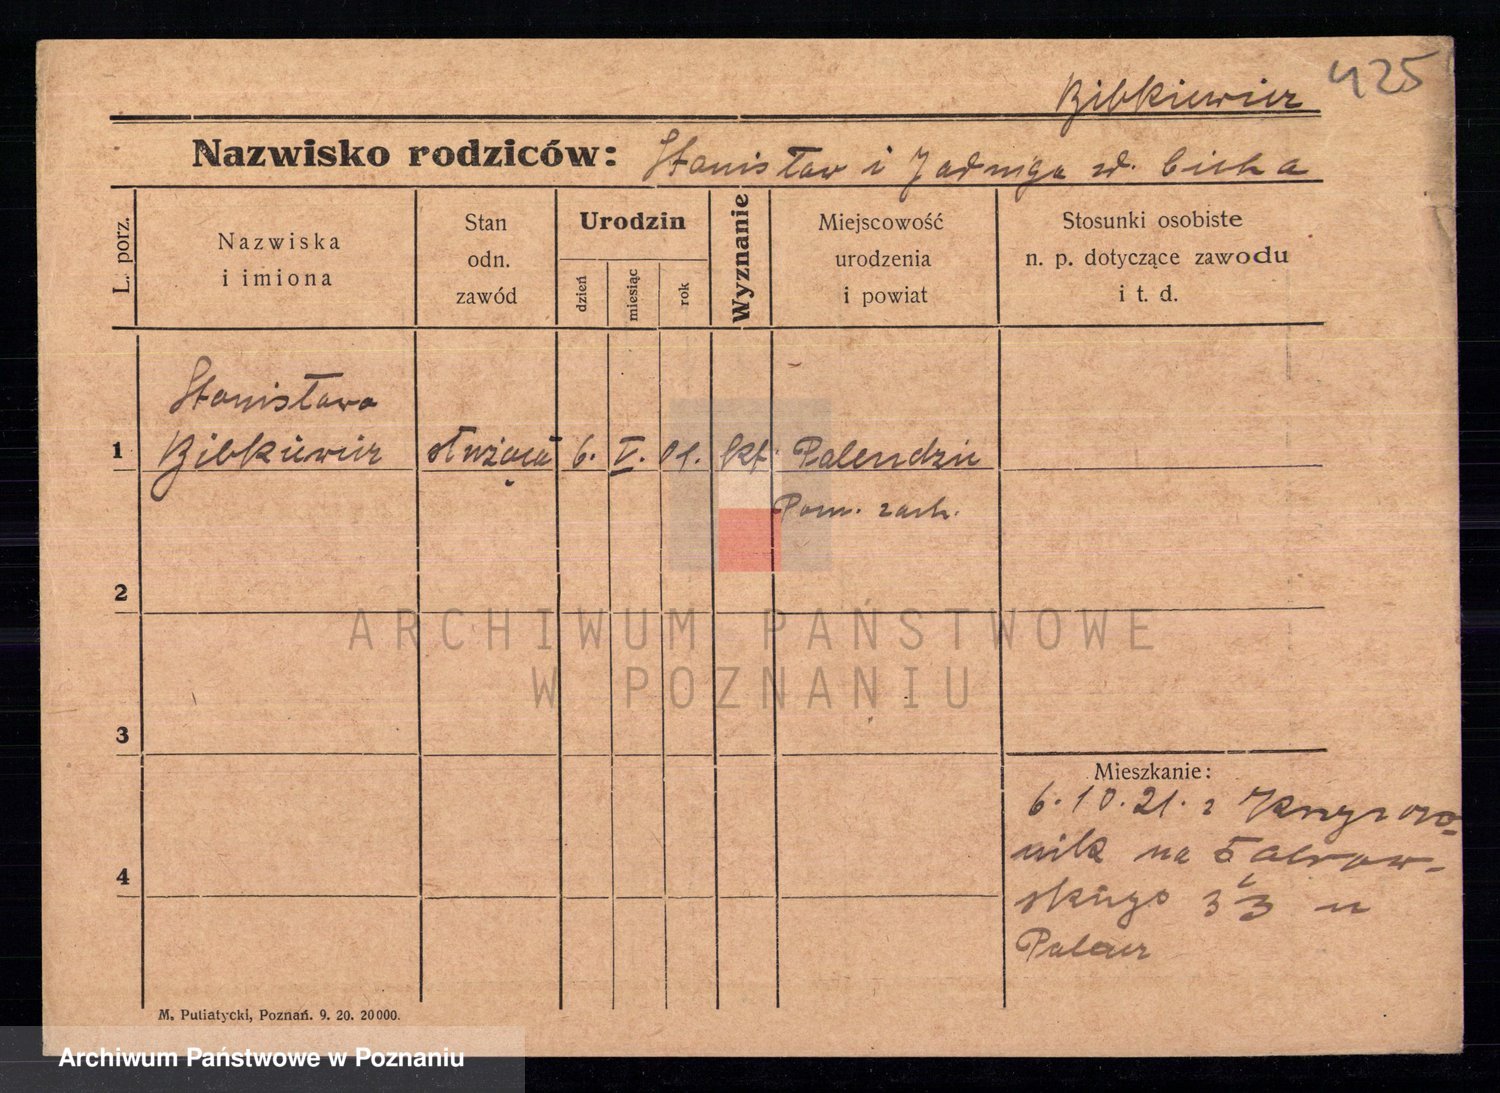 Bibkiewicz 425
Nazwisko rodziców: Stanisław i Jadwiga zd. Cicha
L. porz.
Nazwiska
i imiona
Stan
odn.
zawód
Urodzin
dzień
miesiąc
rok
Wyznanie
Miejscowość
urodzenia
i powiat
Stosunki osobiste
n. p. dotyczące zawodu
i t. d.
Stanisława
1 Bibkiewicz służąca 6. V. 01. kt. Palendzie
Pozn. zach.
2
3
4
Mieszkanie:
6.10.21. z
nik na
skiego 3/3 u
M. Putiatycki, Poznań. 9. 20. 20000.
ARCHIWUM PAŃSTWOWE
W POZNANIU
Archiwum Państwowe w Poznaniu